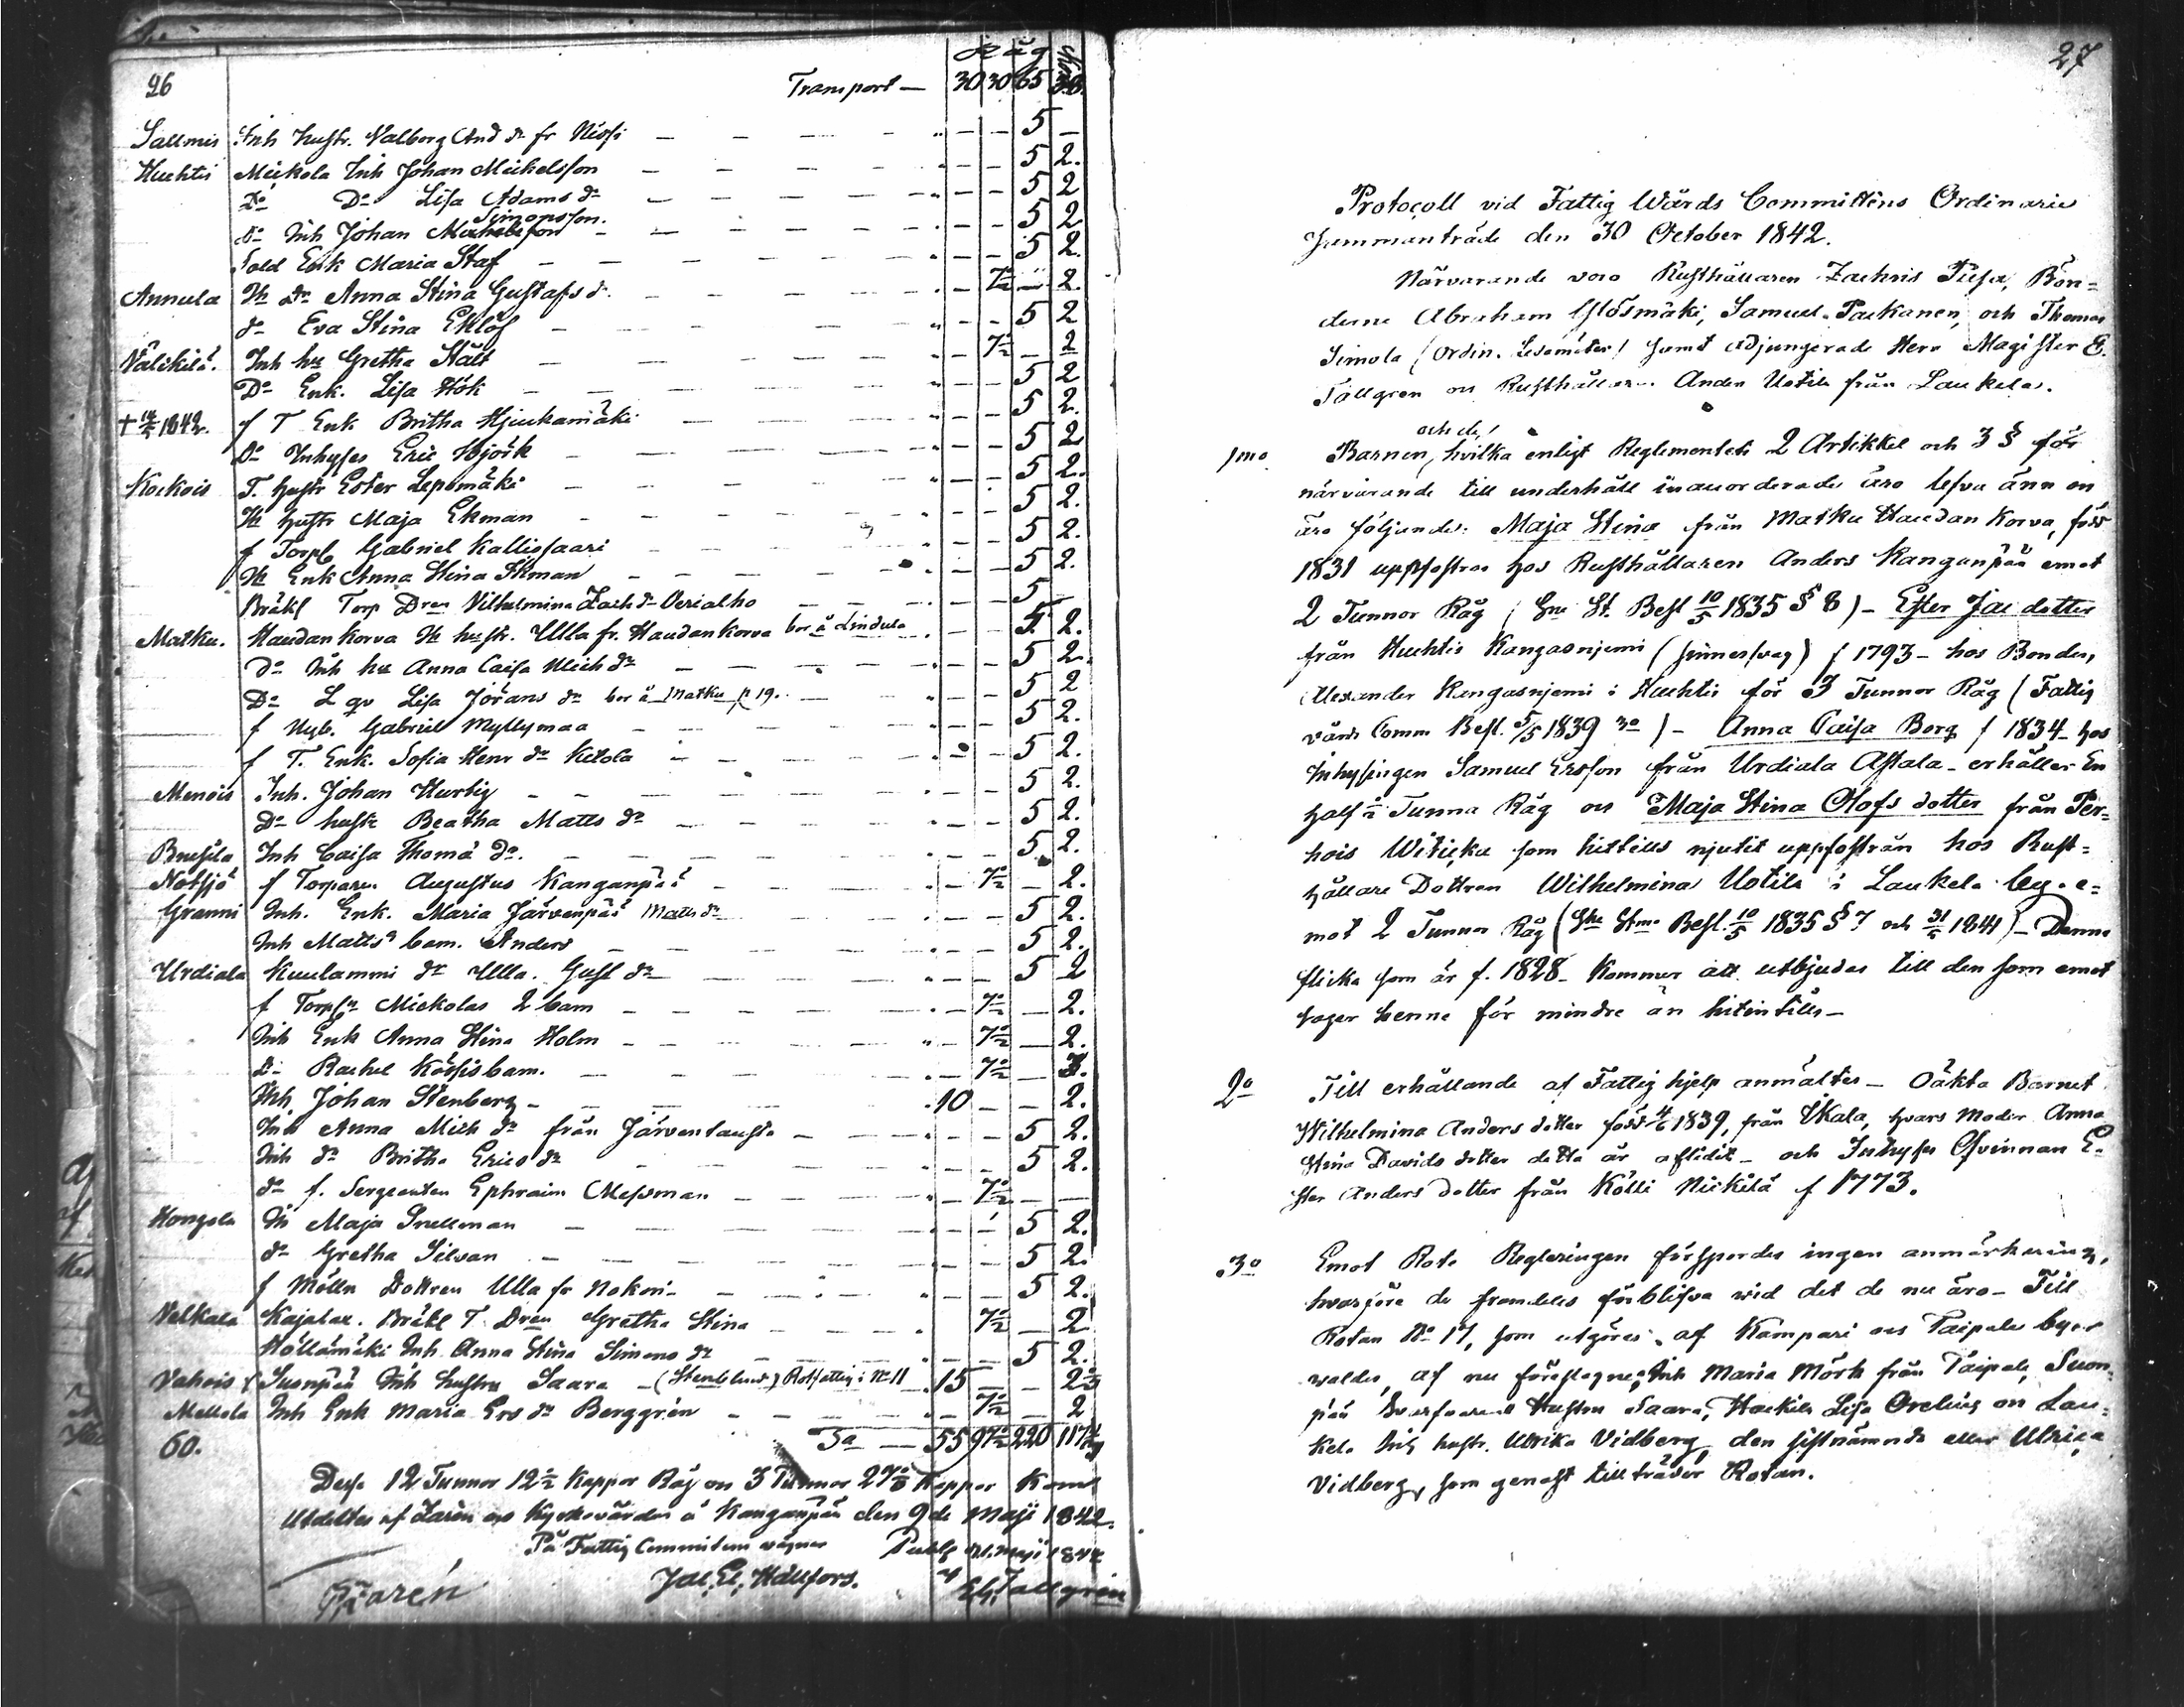 26
Råg
Transport — 30 30 65 38.
Sallmis Inh hustr. Valborg And dr fr Nissi — — — — 5 —
Huhtis Mickola Inh Johan Mickelsson — — — 5 2.
Do Do Lisa Adams dr — — — 5 2
Simonsson.
do Inh Johan — — — 5 2
Sold Enk Maria Staf — — — 5 2.
Annula Ih dr Anna Stina Gustafs d. — — 7½ — 2.
dr Eva Stina Eklöf — — — 5 2
Välikilä. Inh hu Gretha Stålt — — 7½ — 2
Do Enk. Lisa Hök — — — 5 2
1842. f T Enk Britha Hjukamäki — — — 5 2.
Do Inhyses Eric Hjörk — — — 5 2
Kockois T. hustr Ester Lepomäki — — — 5 2.
Ih hustr Maja Ekman — — — 5 2.
f Torp Gabriel Kalliosaari — — — 5 2.
Ih Enk Anna Stina Ekman — — — 5 2.
Bräkl Torp Dren Vilhelmina Zach dr Oerialho — — — 5 —
Matku. Haudankorva Ih hustr. Ulla fr. Haudankorva bor å Lindula — — 5 2.
do Inh hu Anna Caisa Mich dr — — — 5 2.
Do L qv Lisa Jörans dr bor å Matku p 19. — — 5 2
f Nyb. Gabriel Myllymaa — — — 5 2.
f T. Enk. Sofia Henr dr Ketola — — — 5 2.
Menois Inh. Johan Hurtig — — — 5 2.
Do hustr Beatha Matts dr — — — 5 2.
Inh Caisa Thomä dr. — — — 5 2.
Notsjö f Torparen Augustus Kanganpää — — 7½ — 2.
Granni Inh. Enk. Maria Järvenpää Matts dr — — — 5 2.
Inh Matts barn. Anders — — — 5 2.
Urdiala Kuulammi dr Ulla. Gust dr — — — 5 2
f Mickolas 2 barn — — 7½ — 2.
Inh Enk Anna Stina Holm — — 7½ — 2.
Do Rachel barn. — — 7½ —
Inh. Johan Stenberg — 10 — — 2.
Inh Anna Mich dr från Järventausta — — — 5 2.
Inh dr Britha Erics dr — — — 5 2.
do f. Sergeanten Ephraim Messman — — 7½ — —
Hongola Ih Maja Snellman — — — 5 2.
do Gretha Silvan — — — 5 2.
f Möllr Dottren Ulla fr Nokori — — — 5 2.
Nelkala Kajalae. Bräkl T. Dren Gretha Stina — — 7½ — 2
Höllämäki Inh Anna Stina Simons dr — — — 5 2.
Vahois Suonpää Inh hustru Saara — (Stenlund) Rotfattig i No 11 15 — — 2
Mellola Inh Enk Maria Ers dr Berggrén — — 7½ — 2
60. Sa — 55 97½ 220 117
Desse 12 Tunnor 12½ Kappor Råg och 3 Tunnor 27 Kappor Korn
Utdeltes af Zarén och Kyrkovärden å Kanganpää den 9de Maji 1842.
På Fattig Committens vägnar Publ Maji 1842
Zarén Jac. El. Hällfors. Tallgrén
27
Protocoll vid Fattig Wårds Committéns Ordinarie
Sammanträde den 30 October 1842.
Närvarande voro Rusthållaren Zachris Tusa, Bön=
derne Abraham Yldsmäki, Samuel Packanen, och Thomas
Simola (Ordin. Ledamöter) samt adjungerade Herr Magister E.
Tallgren och Rusthållaren Anders Uotila från Laukela.
och de,
1mo Barnen, hvilka enligt Reglementets 2 Artikkel och 3 § för
närvarande till underhåll inauorderade äro lefva ännu och
äro följande: Maja Stina från Matku Haudan Korva, född
1831 uppfostras hos Rusthållaren Anders Kanganpää emot
2 Tunnor Råg ( Sne St. Besl 10/5 1835 § 8 ) — Ester Jac dotter
från Huhtis Kangasnjemi (sinnessvag) f 1793 — hos Bonden,
Alexander Kangasnjemi i Huhtis för 3 Tunnor Råg (Fattig
vårds Comm Besl. 5/5 1839 3o ) — Anna Caisa Borg f 1834 — hos
Inhysingen Samuel Ersson från Urdiala Astala — erhåller En
half ½ Tunna Råg och Maja Stina Olofs dotter från Per=
hois Witicku som hittills njutit uppfostran hos Rust=
hållare Dottren Wilhelmina Uotila i Laukela by. e=
mot 2 Tunnor Råg (Sne Stme Besl. 10/5 1835 § 7 och 31/5 1841) — Denna
flicka som är f. 1828 — Kommer att utbjudas till den som emot
tager henne för mindre än hitintills —
2o Till erhållande af Fattig hjelp anmältes — Oäkta Barnet
Wilhelmina Anders dotter född 4/6 1839, från Ikala, hvars Moder Anna
Stina Davids dotter detta år aflidit — och Inhyses Qvinnan E=
ster Anders dotter från Kölli Nickilä f 1773.
3o Emot Rote Regleringen försspordes ingen anmärkning,
hvarföre de framdeles förblifva vid det de nu äro — Till
Rotan No 17, som utgöres af Kampari och Taipale byar
valdes, af nu föreslagne; Inh Maria Mörk från Taipale, Suon=
pää Hustru Saara, Lisa Orelius och Lau=
kela Inh hustr. Ulrika Vidberg, den sistnämnda eller Ulrica
Vidberg, som genast tillträder Rotan.